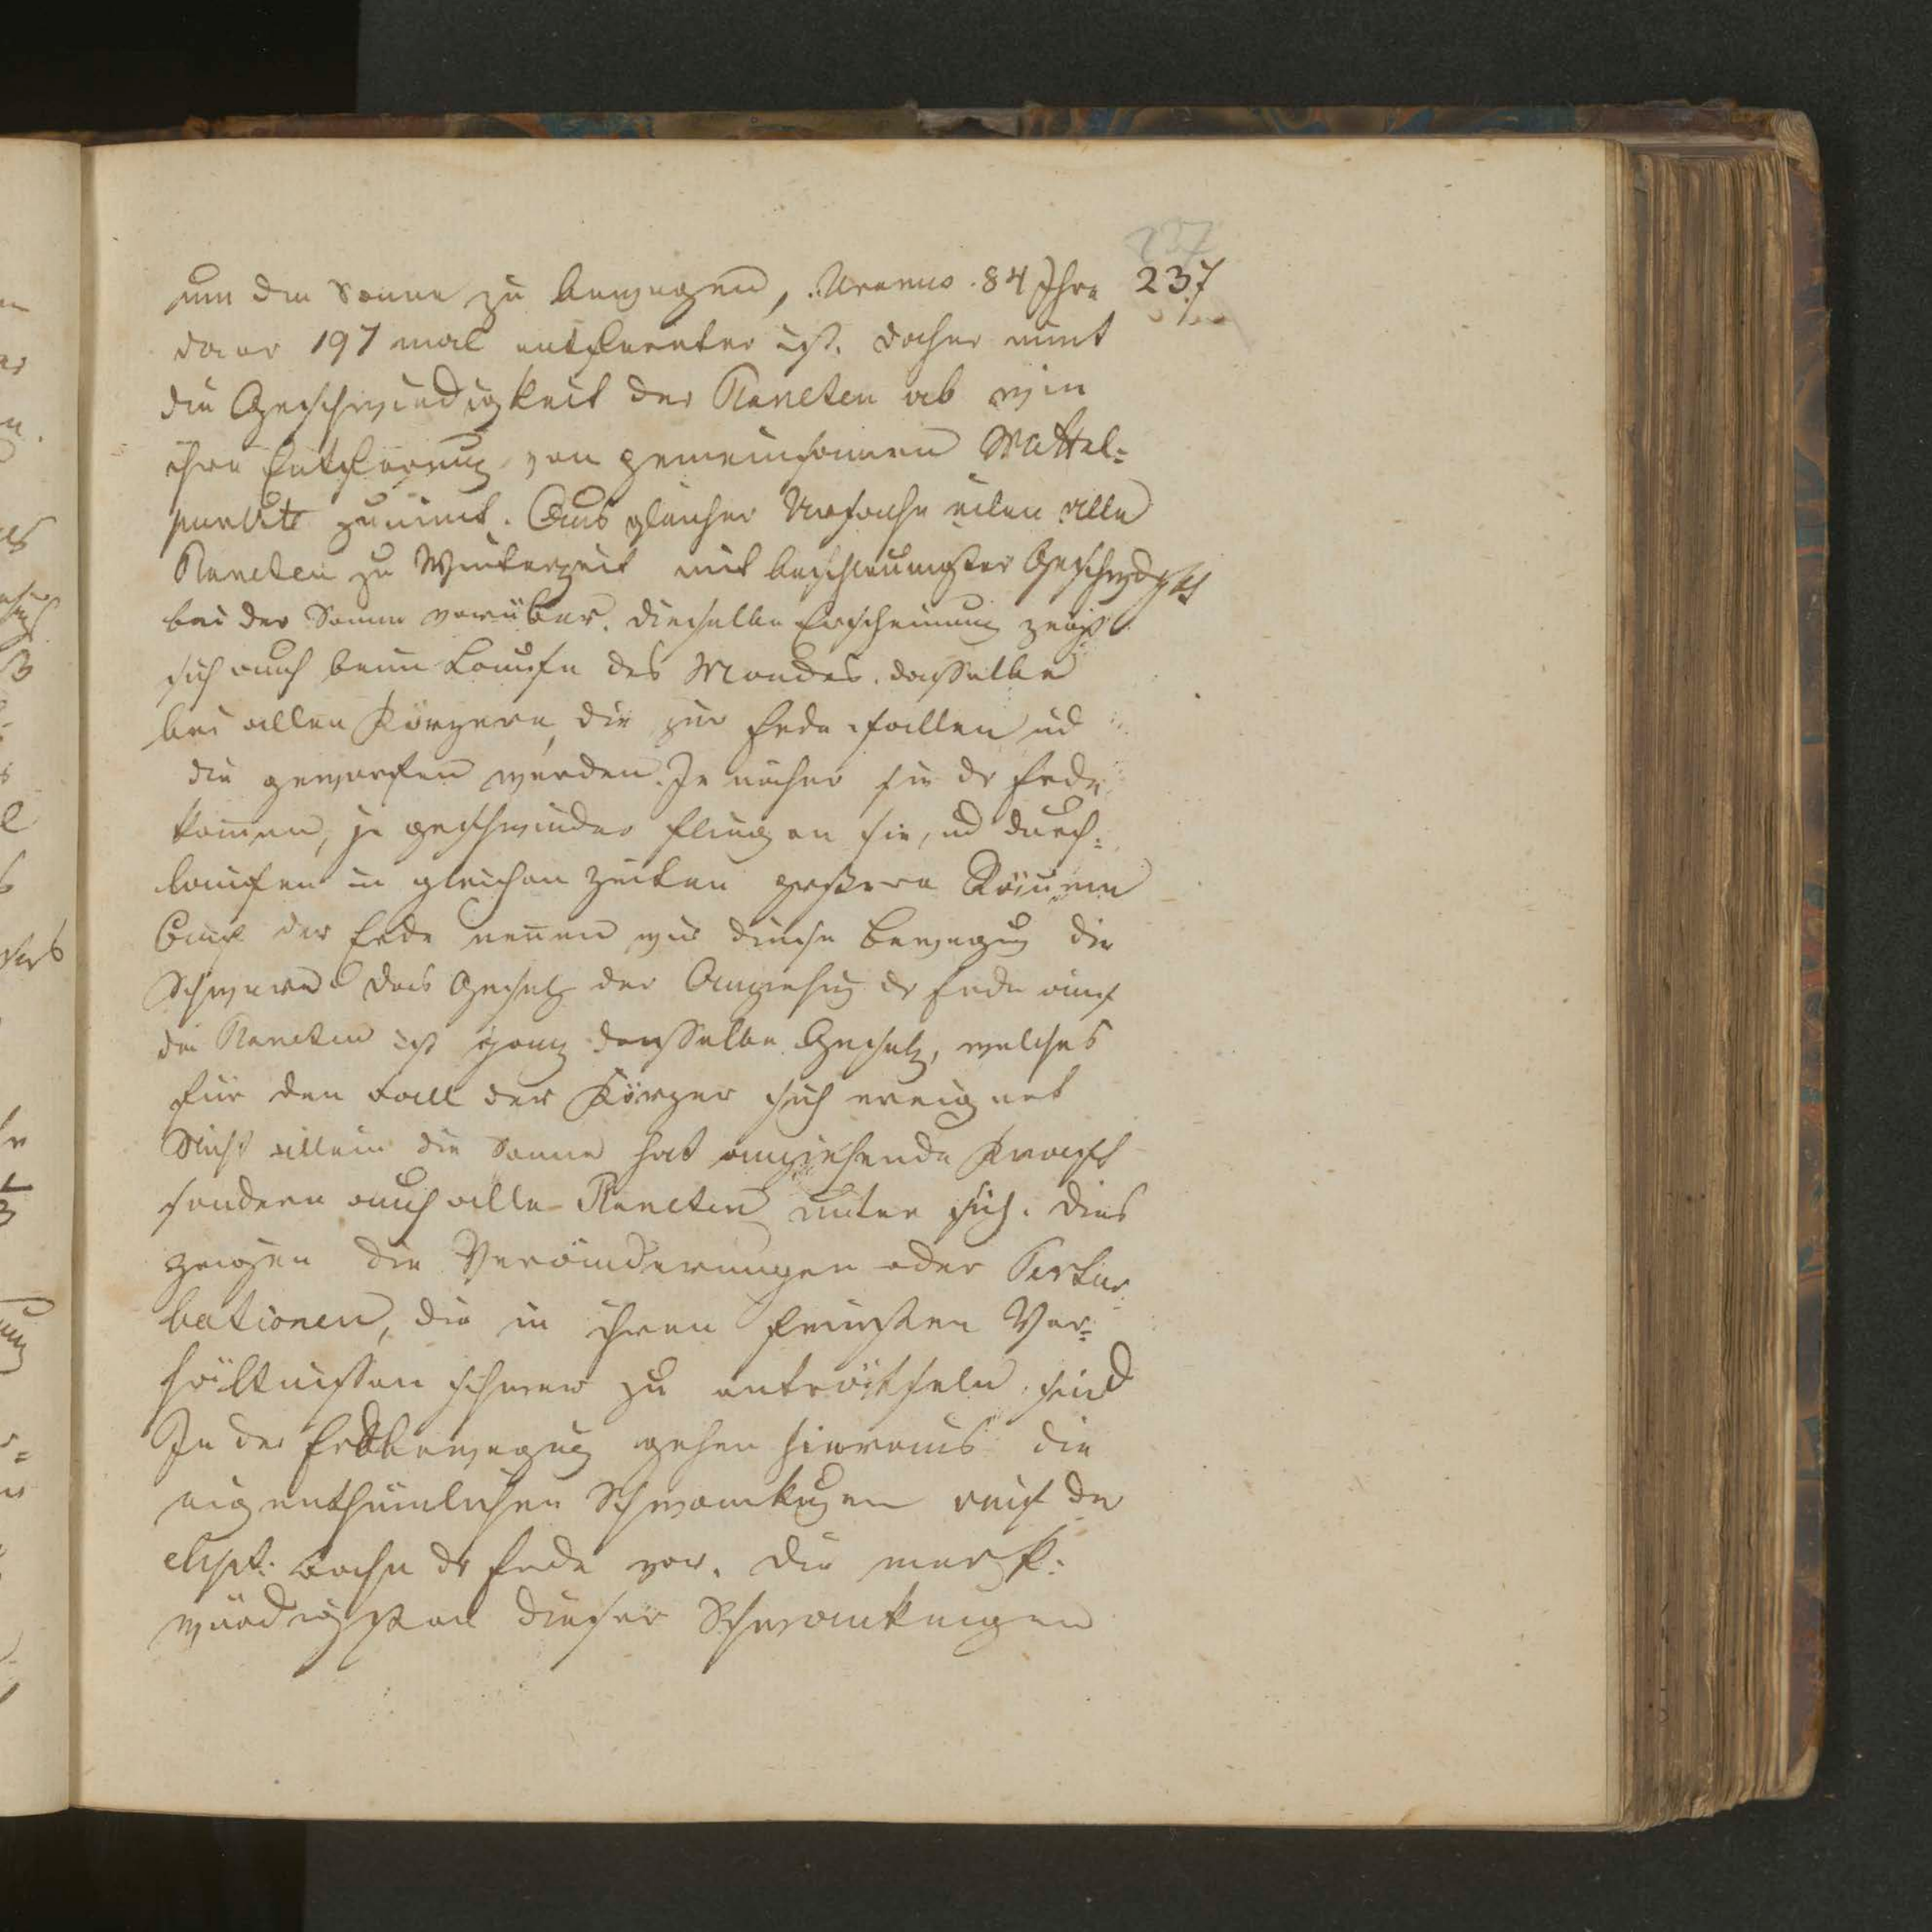 237
um die Sonne zu bewegen, Uranus 84 Jhre 237
da er 197 mal entfernter ist. daher nimt
die Geschwindigkeit der Planeten ab wie
ihre Entfernung von gemeinsamen Mittel=
punkte zunimt. Aus gleicher Ursache eilen alle
Planeten zu Winterzeit mit beschleunigter Geschwdgkt
bei der Sonne vorüber. dieselbe Erscheinung zeigt
sich auch beim Laufe des Mondes. dasselbe
bei allen Körpern, die zur Erde fallen ud
die geworfen werden. Je näher sie dr Erde
komen, je geschwinder fliegen sie, ud durch=
laufen in gleichen Zeiten größere Räume
Auf der Erde nenen wir diese Bewegug die
Schwere. Das Gesetz der Anziehug dr Erde auf
die Planeten ist ganz dasselbe Gesetz, welches
für den Fall der Körper sich ereignet
Nicht allein die Sonne hat anziehende Kraft
sondern auch alle Planeten unter sich. Dies
zeigen die Veränderungen oder Pertur
bationen, die in ihren feinsten Ver=
hältnissen schwer zu enträthseln sind
In der Erdbewegug gehen hieraus die
eigenthümlichen Schwankugen auf der
elipt. Bahn dr Erde vor. Die merk=
würdigsten dieser Schwankungen